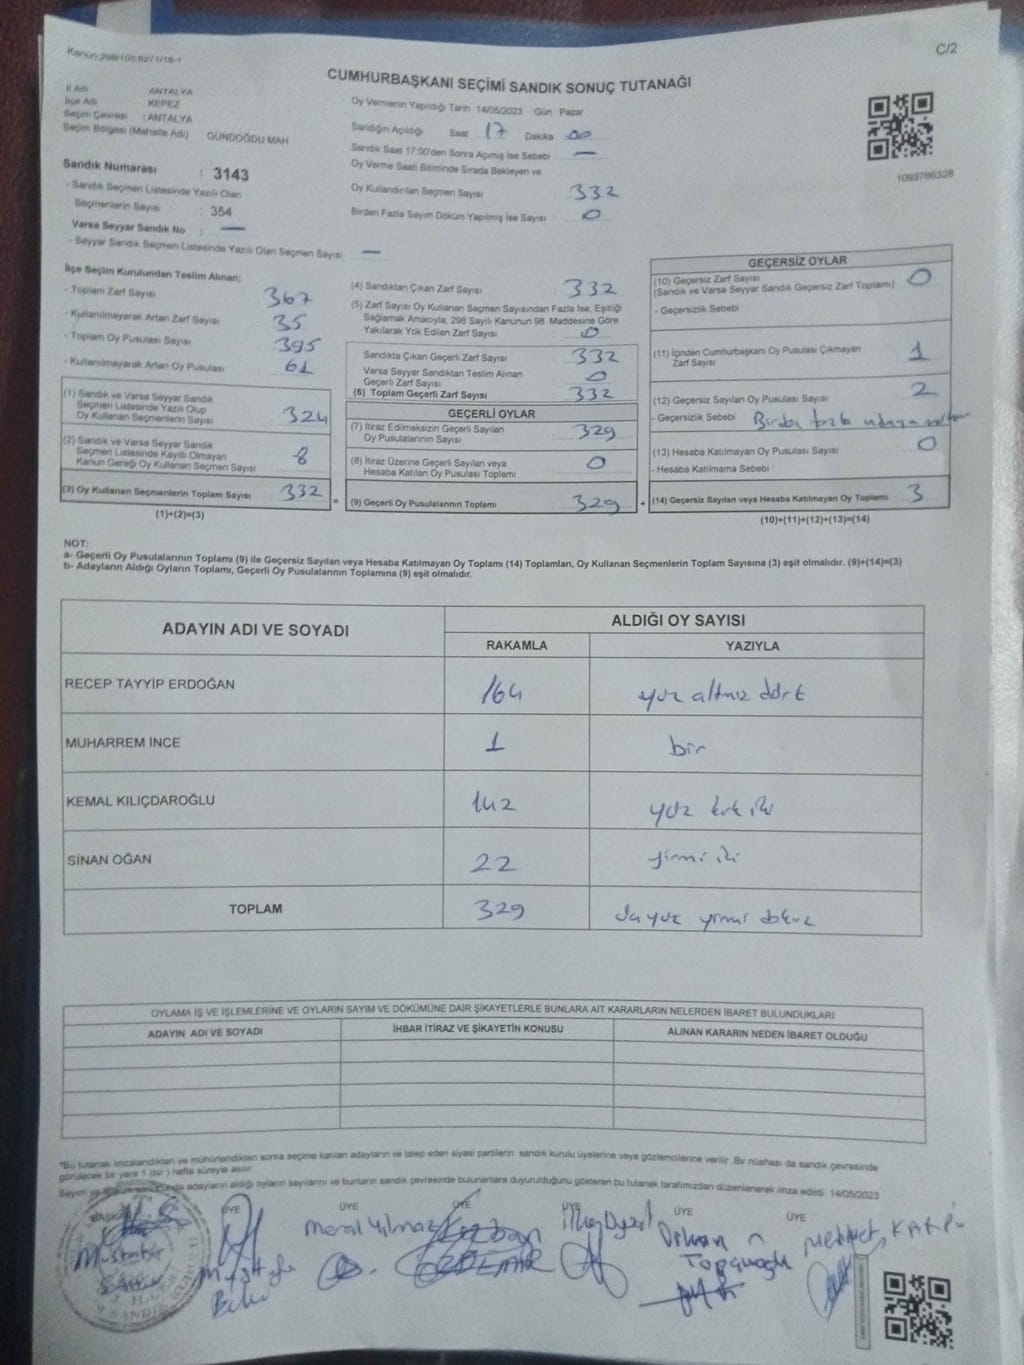 Kanun:298/105,6271/18-1
C/2
CUMHURBAŞKANI SEÇİMİ SANDIK SONUÇ TUTANAĞI
İl Adı ANTALYA
İlçe Adı KEPEZ
Seçim Çevresi : ANTALYA
Seçim Bölgesi (Mahalle Adı) GÜNDOĞDU MAH
Sandık Numarası : 3143
- Sandık Seçmen Listesinde Yazılı Olan
Seçmenlerin Sayısı : 354
Varsa Seyyar Sandık No : —
- Seyyar Sandık Seçmen Listesinde Yazılı Olan Seçmen Sayısı: —
Oy Vermenin Yapıldığı Tarih :14/05/2023 Gün : Pazar
Sandığın Açıldığı Saat 17 Dakika 00
Sandık Saat 17:00'den Sonra Açmış İse Sebebi —
Oy Verme Saati Bitiminde Sırada Bekleyen ve
Oy Kullandırılan Seçmen Sayısı 332
Birden Fazla Sayım Döküm Yapılmış İse Sayısı 0
1093786328
İlçe Seçim Kurulundan Teslim Alınan;
- Toplam Zarf Sayısı 367
- Kullanılmayarak Artan Zarf Sayısı 35
- Toplam Oy Pusulası Sayısı 395
- Kullanılmayarak Artan Oy Pusulası 61
(1) Sandık ve Varsa Seyyar Sandık
Seçmen Listesinde Yazılı Olup
Oy Kullanan Seçmenlerin Sayısı 324
(2) Sandık ve Varsa Seyyar Sandık
Seçmen Listesinde Kayıtlı Olmayan
Kanun Gereği Oy Kullanan Seçmen Sayısı 8
(3) Oy Kullanan Seçmenlerin Toplam Sayısı 332
(1)+(2)=(3)
(4) Sandıktan Çıkan Zarf Sayısı 332
(5) Zarf Sayısı Oy Kullanan Seçmen Sayısından Fazla İse, Eşitliği
Sağlamak Amacıyla, 298 Sayılı Kanunun 98. Maddesine Göre
Yakılarak Yok Edilen Zarf Sayısı 0
Sandıkta Çıkan Geçerli Zarf Sayısı 332
Varsa Seyyar Sandıktan Teslim Alınan
Geçerli Zarf Sayısı 0
(6) Toplam Geçerli Zarf Sayısı 332
GEÇERLİ OYLAR
(7) İtiraz Edilmeksizin Geçerli Sayılan
Oy Pusulalarının Sayısı 329
(8) İtiraz Üzerine Geçerli Sayılan veya
Hesaba Katılan Oy Pusulası Toplamı 0
= (9) Geçerli Oy Pusulalarının Toplamı 329 +
GEÇERSİZ OYLAR
(10) Geçersiz Zarf Sayısı 0
(Sandık ve Varsa Seyyar Sandık Geçersiz Zarf Toplamı)
- Geçersizlik Sebebi
(11) İçinden Cumhurbaşkanı Oy Pusulası Çıkmayan
Zarf Sayısı 1
(12) Geçersiz Sayılan Oy Pusulası Sayısı 2
- Geçersizlik Sebebi Birden fazla
(13) Hesaba Katılmayan Oy Pusulası Sayısı 0
- Hesaba Katılmama Sebebi
(14) Geçersiz Sayılan veya Hesaba Katılmayan Oy Toplamı 3
(10)+(11)+(12)+(13)=(14)
NOT:
a- Geçerli Oy Pusulalarının Toplamı (9) ile Geçersiz Sayılan veya Hesaba Katılmayan Oy Toplamı (14) Toplamları, Oy Kullanan Seçmenlerin Toplam Sayısına (3) eşit olmalıdır. (9)+(14)=(3)
b- Adayların Aldığı Oyların Toplamı, Geçerli Oy Pusulalarının Toplamına (9) eşit olmalıdır.
ADAYIN ADI VE SOYADI ALDIĞI OY SAYISI
RAKAMLA YAZIYLA
RECEP TAYYİP ERDOĞAN 164 yüz altmış dört
MUHARREM İNCE 1 bir
KEMAL KILIÇDAROĞLU 142 yüz kırk iki
SİNAN OĞAN 22 yirmi iki
TOPLAM 329 üç yüz yirmi dokuz
OYLAMA İŞ VE İŞLEMLERİNE VE OYLARIN SAYIM VE DÖKÜMÜNE DAİR ŞİKAYETLERLE BUNLARA AİT KARARLARIN NELERDEN İBARET BULUNDUKLARI
ADAYIN ADI VE SOYADI İHBAR İTİRAZ VE ŞİKAYETİN KONUSU ALINAN KARARIN NEDEN İBARET OLDUĞU
*Bu tutanak imzalandıktan ve mühürlendikten sonra seçime katılan adayların ve talep eden siyasi partilerin sandık kurulu üyelerine veya gözlemcilerine verilir. Bir nüshası da sandık çevresinde
görülecek bir yere 1 (bir) hafta süreyle asılır.
Sayım ve döküm sonucunda adayların aldığı oyların sayılarını ve bunların sandık çevresinde bulunanlara duyurulduğunu gösteren bu tutanak tarafımızdan düzenlenerek imza edildi. 14/05/2023
BAŞKAN ÜYE ÜYE ÜYE ÜYE ÜYE ÜYE
Meral Yılmaz
Orhan
Topçuoğlu
Mustafa